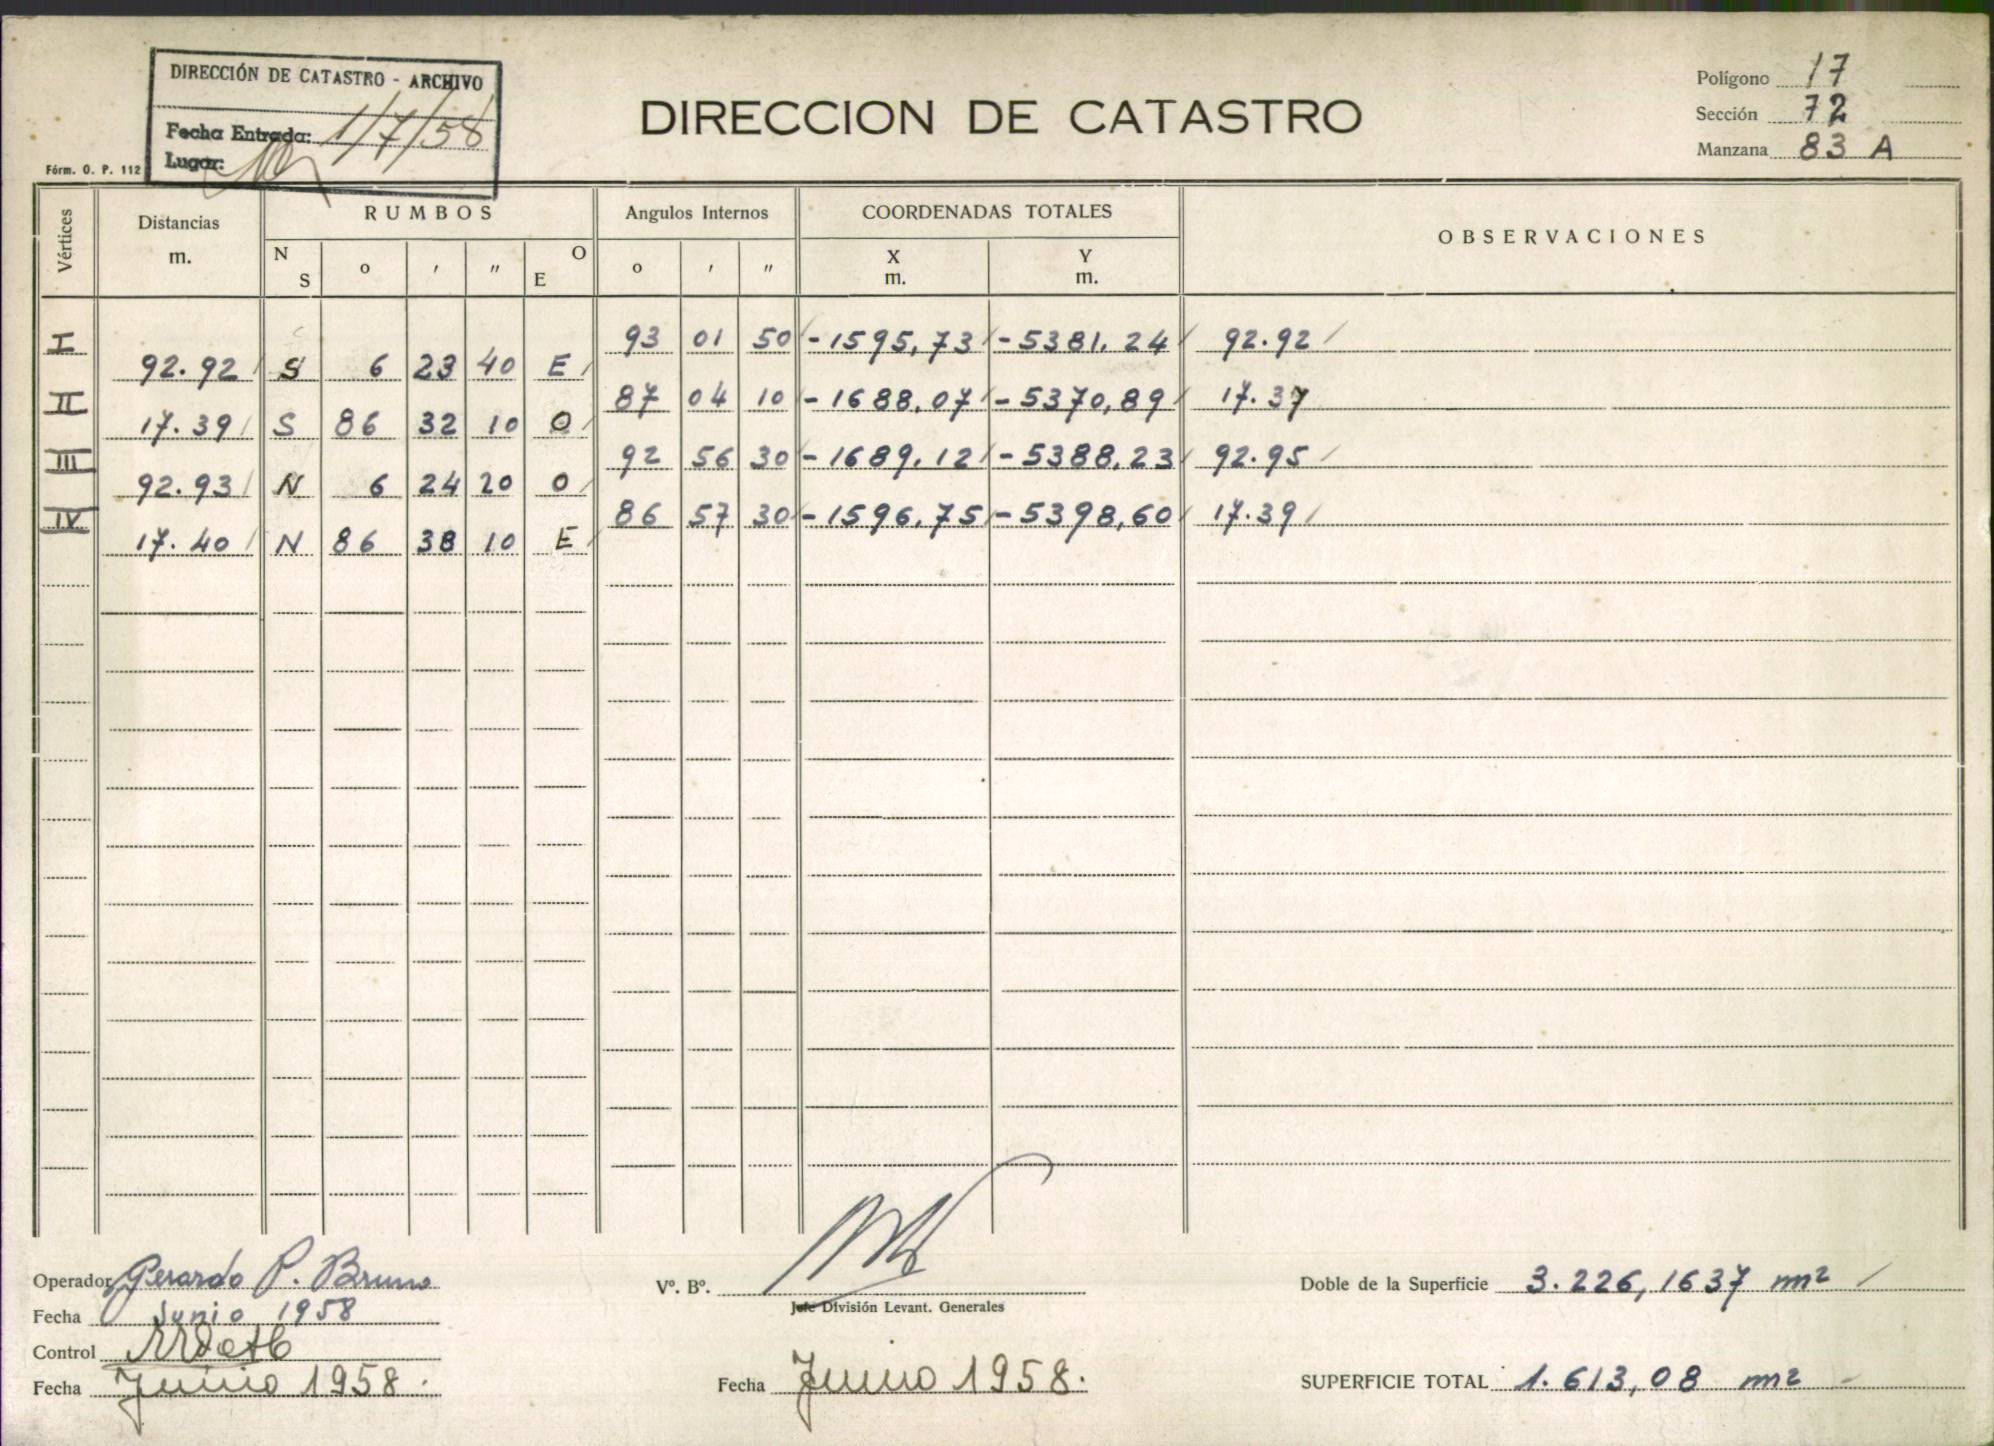 DIRECCIÓN DE CATASTRO - ARCHIVO
Fecha Entrada: 1/7/58
Lugar:
Fórm. O. P. 112
DIRECCION DE CATASTRO
Polígono 17
Sección 72
Manzana 83 A
Vértices Distancias m. RUMBOS Angulos Internos COORDENADAS TOTALES OBSERVACIONES
N S o ' " O E o ' " X m. Y m.
I 93 01 50 -1595,73 -5381,24 92.92
92.92 S 6 23 40 E
II 87 04 10 -1688,07 -5370,89 17.37
17.39 S 86 32 10 O
III 92 56 30 -1689,12 -5388,23 92.95
92.93 N 6 24 20 O
IV 86 57 30 -1596,75 -5398,60 17.39
17.40 N 86 38 10 E
Operador Gerardo P. Bruno
Fecha Junio 1958
Control
Fecha Junio 1958.
Vº. Bº.
Jefe División Levant. Generales
Fecha Junio 1958.
Doble de la Superficie 3.226,1637 m2
SUPERFICIE TOTAL 1.613,08 m2